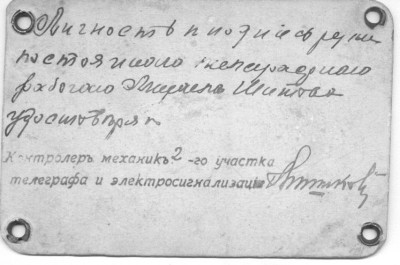 Личность и подпись руки
постояннаго внепоѣзднаго
рабочаго Михаила Шинтов
удостовѣряю
Контролеръ механикъ 2-го участка
телеграфа и электросигнализаціи